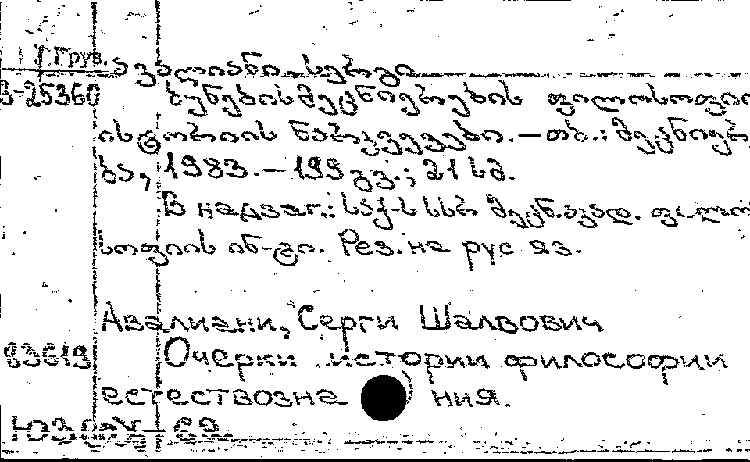 Груз.
ავალიანი, სერგი
В-25360 ბუნებისმეცნიერების ფილოსოფიი
ისტორიის ნარკვევები. – თბ.: მეცნიერ
ბა, 1983. – 199 გვ.; 21 სმ.
В надзаг.: საქ-ს სსრ მეცნ. აკად. ფილო
სოფიის ინ-ტი. Рез. на рус яз.
Авалиани, Серги Шалвович
83619 Очерки истории философии
естествозна ния.